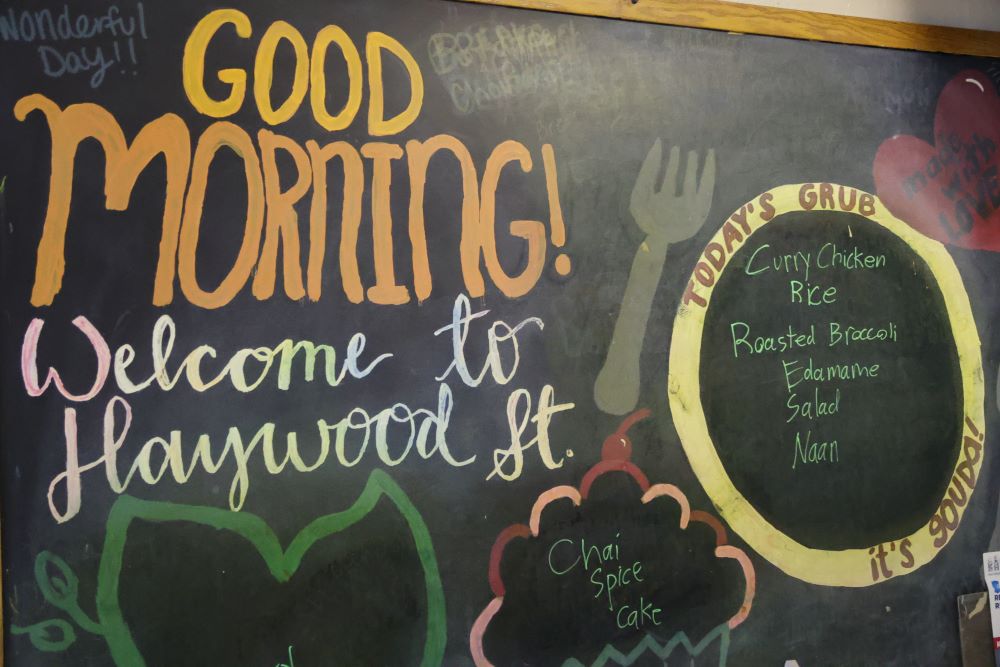 Wonderful
Day!!
GOOD
MORNING!
Welcome to
Haywood St.
TODAY'S GRUB
Curry Chicken
Rice
Roasted Broccoli
Edamame
Salad
Naan
it's gouda!
made
with
LOVE
Chai
Spice
Cake